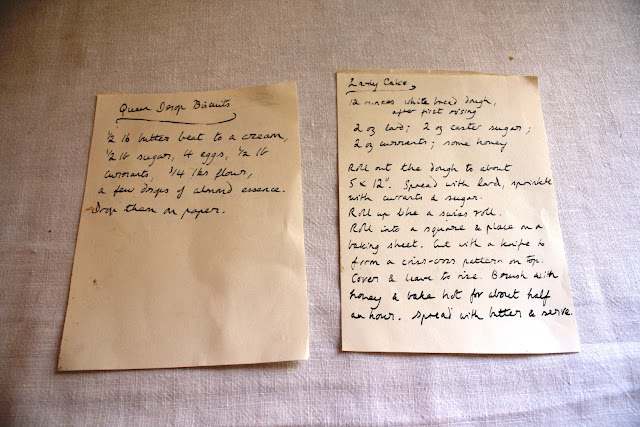 Queen Drop Biscuits
1/2 lb butter beat to a cream,
1/2 lb sugar, 4 eggs, 1/2 lb
currants, 3/4 lbs flour,
a few drops of almond essence.
Drop them on paper.
Lardy Cake
12 ounces white bread dough,
after first rising
2 oz lard; 2 oz caster sugar;
2 oz currants; some honey
Roll out the dough to about
5 x 12". Spread with lard, sprinkle
with currants & sugar.
Roll up like a swiss roll.
Roll into a square & place on a
baking sheet. Cut with a knife to
form a criss-cross pattern on top.
Cover & leave to rise. Brush with
honey & bake hot for about half
an hour. Spread with butter & serve.